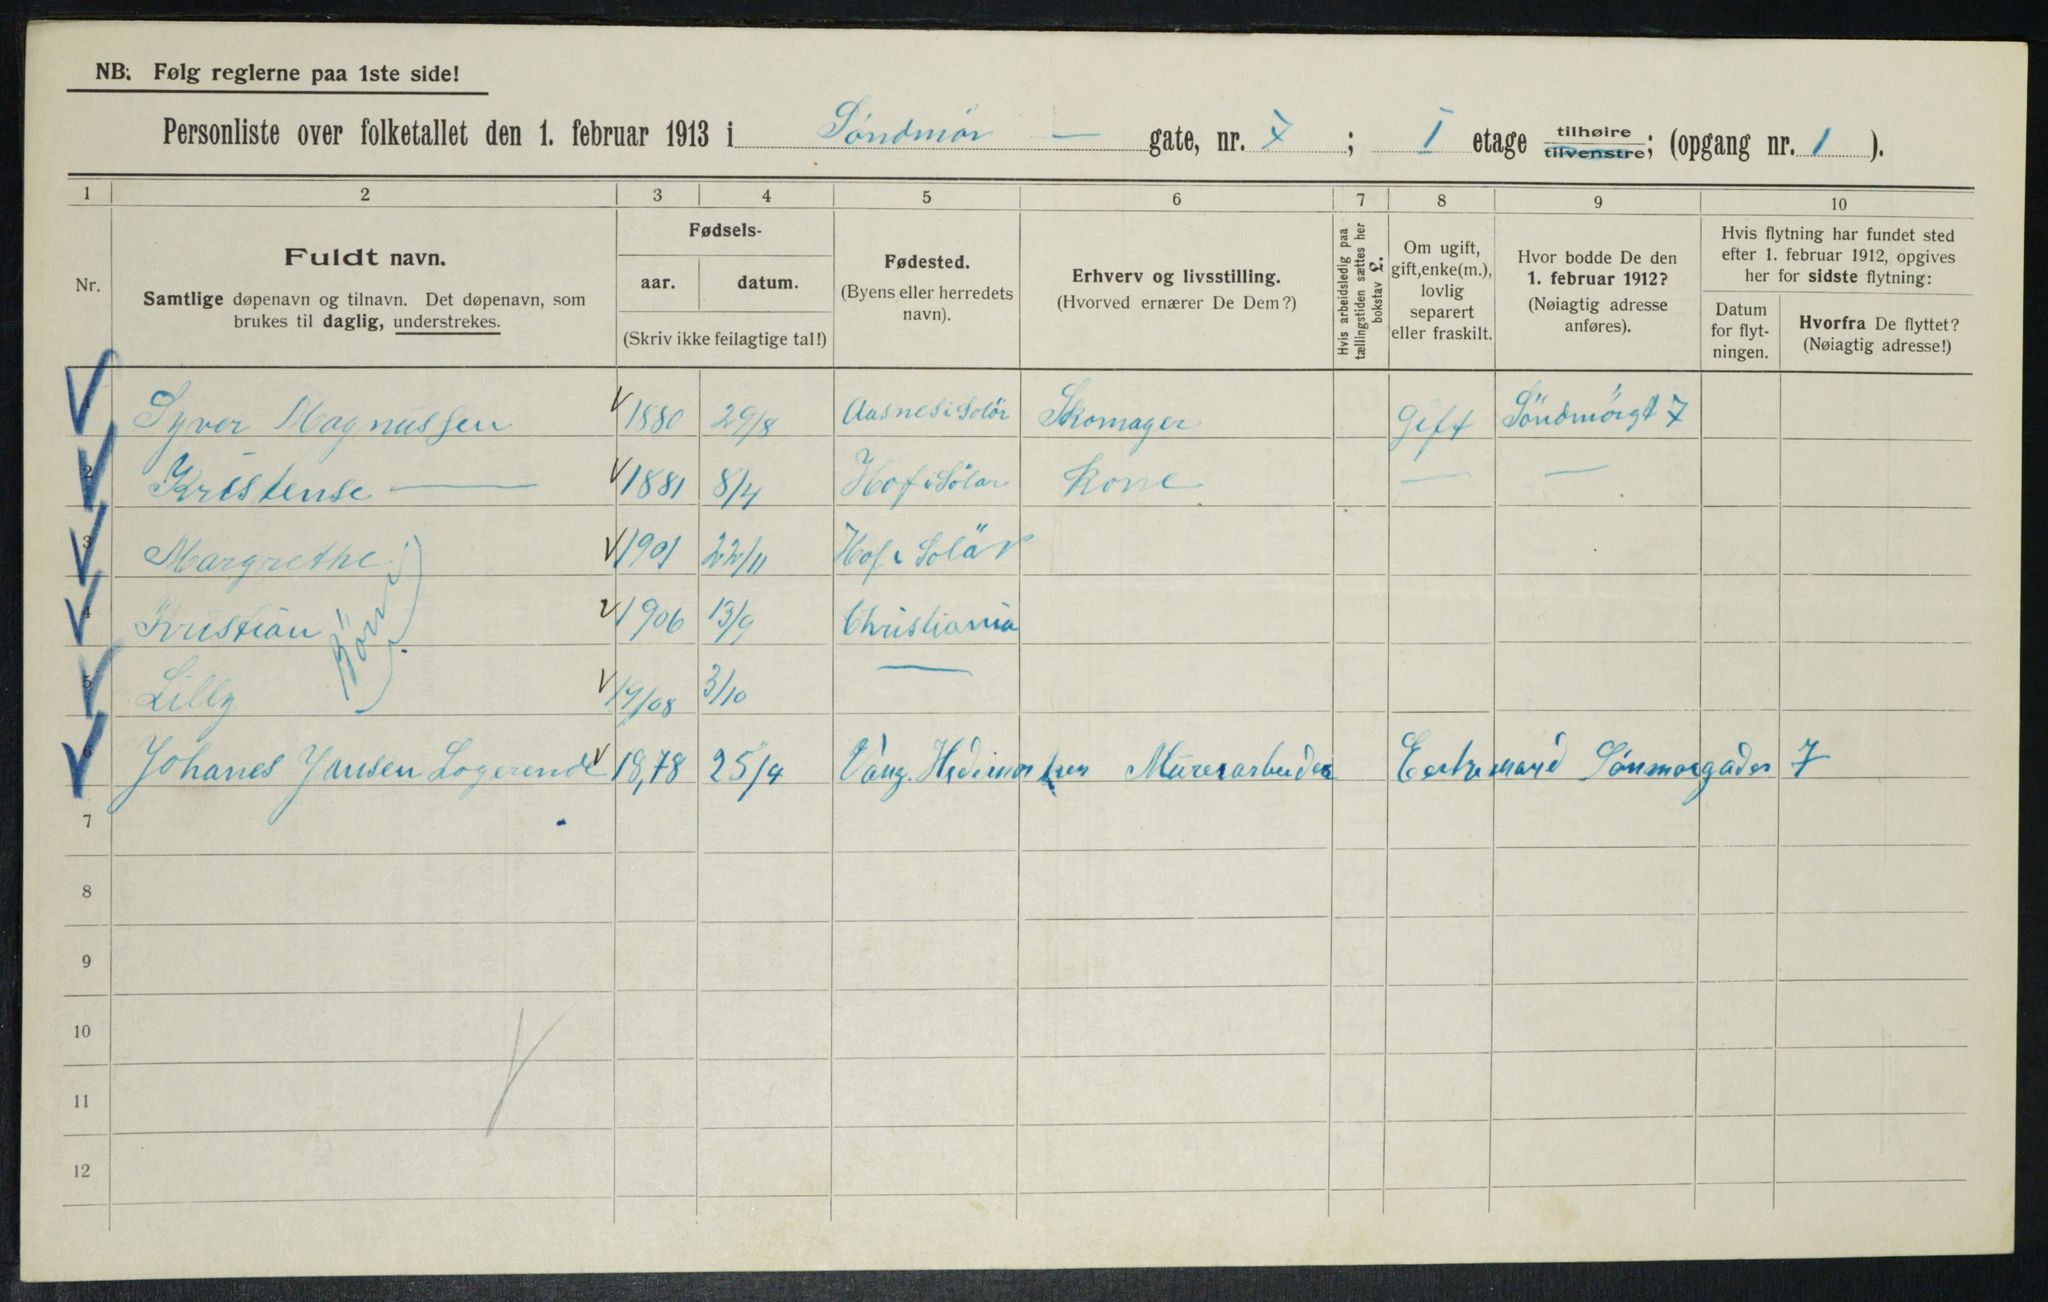 NB. Følg reglerne paa 1ste side!
Personliste over folketallet den 1. februar 1913 i Søndmør — gate, nr. 7 ; I etage tilhøire tilvenstre; (opgang nr. 1 ).
1 2 3 4 5 6 7 8 9 10
Nr.
Fuldt navn.
Samtlige døpenavn og tilnavn. Det døpenavn, som
brukes til daglig, understrekes.
Fødsels-
aar. datum.
(Skriv ikke feilagtige tal!)
Fødested.
(Byens eller herredets
navn).
Erhverv og livsstilling.
(Hvorved ernærer De Dem?)
Hvis arbeidsledig paa
tællingstiden sættes her
bokstav L.
Om ugift,
gift, enke(m.),
lovlig
separert
eller fraskilt.
Hvor bodde De den
1. februar 1912?
(Nøiagtig adresse
anføres).
Hvis flytning har fundet sted
efter 1. februar 1912, opgives
her for sidste flytning:
Datum
for flyt-
ningen.
Hvorfra De flyttet?
(Nøiagtig adresse!)
1 Syver Magnussen 1880 29/8 Aasnes i Solör Skomager Gift Söndmörgt 7
2 Kristense — 1881 8/4 Hof i Sölör kone — —
3 Margrethe 1901 22/11 Hof i Solör
Börn
4 Kristian 1906 13/9 Christiania
5 Lilly 19/08 3/10 —
6 Johanes Jansen Logerende 18,78 25/4 Vang. Hedemarken Murerarbeider Sönmorgaden 7
7
8
9
10
11
12